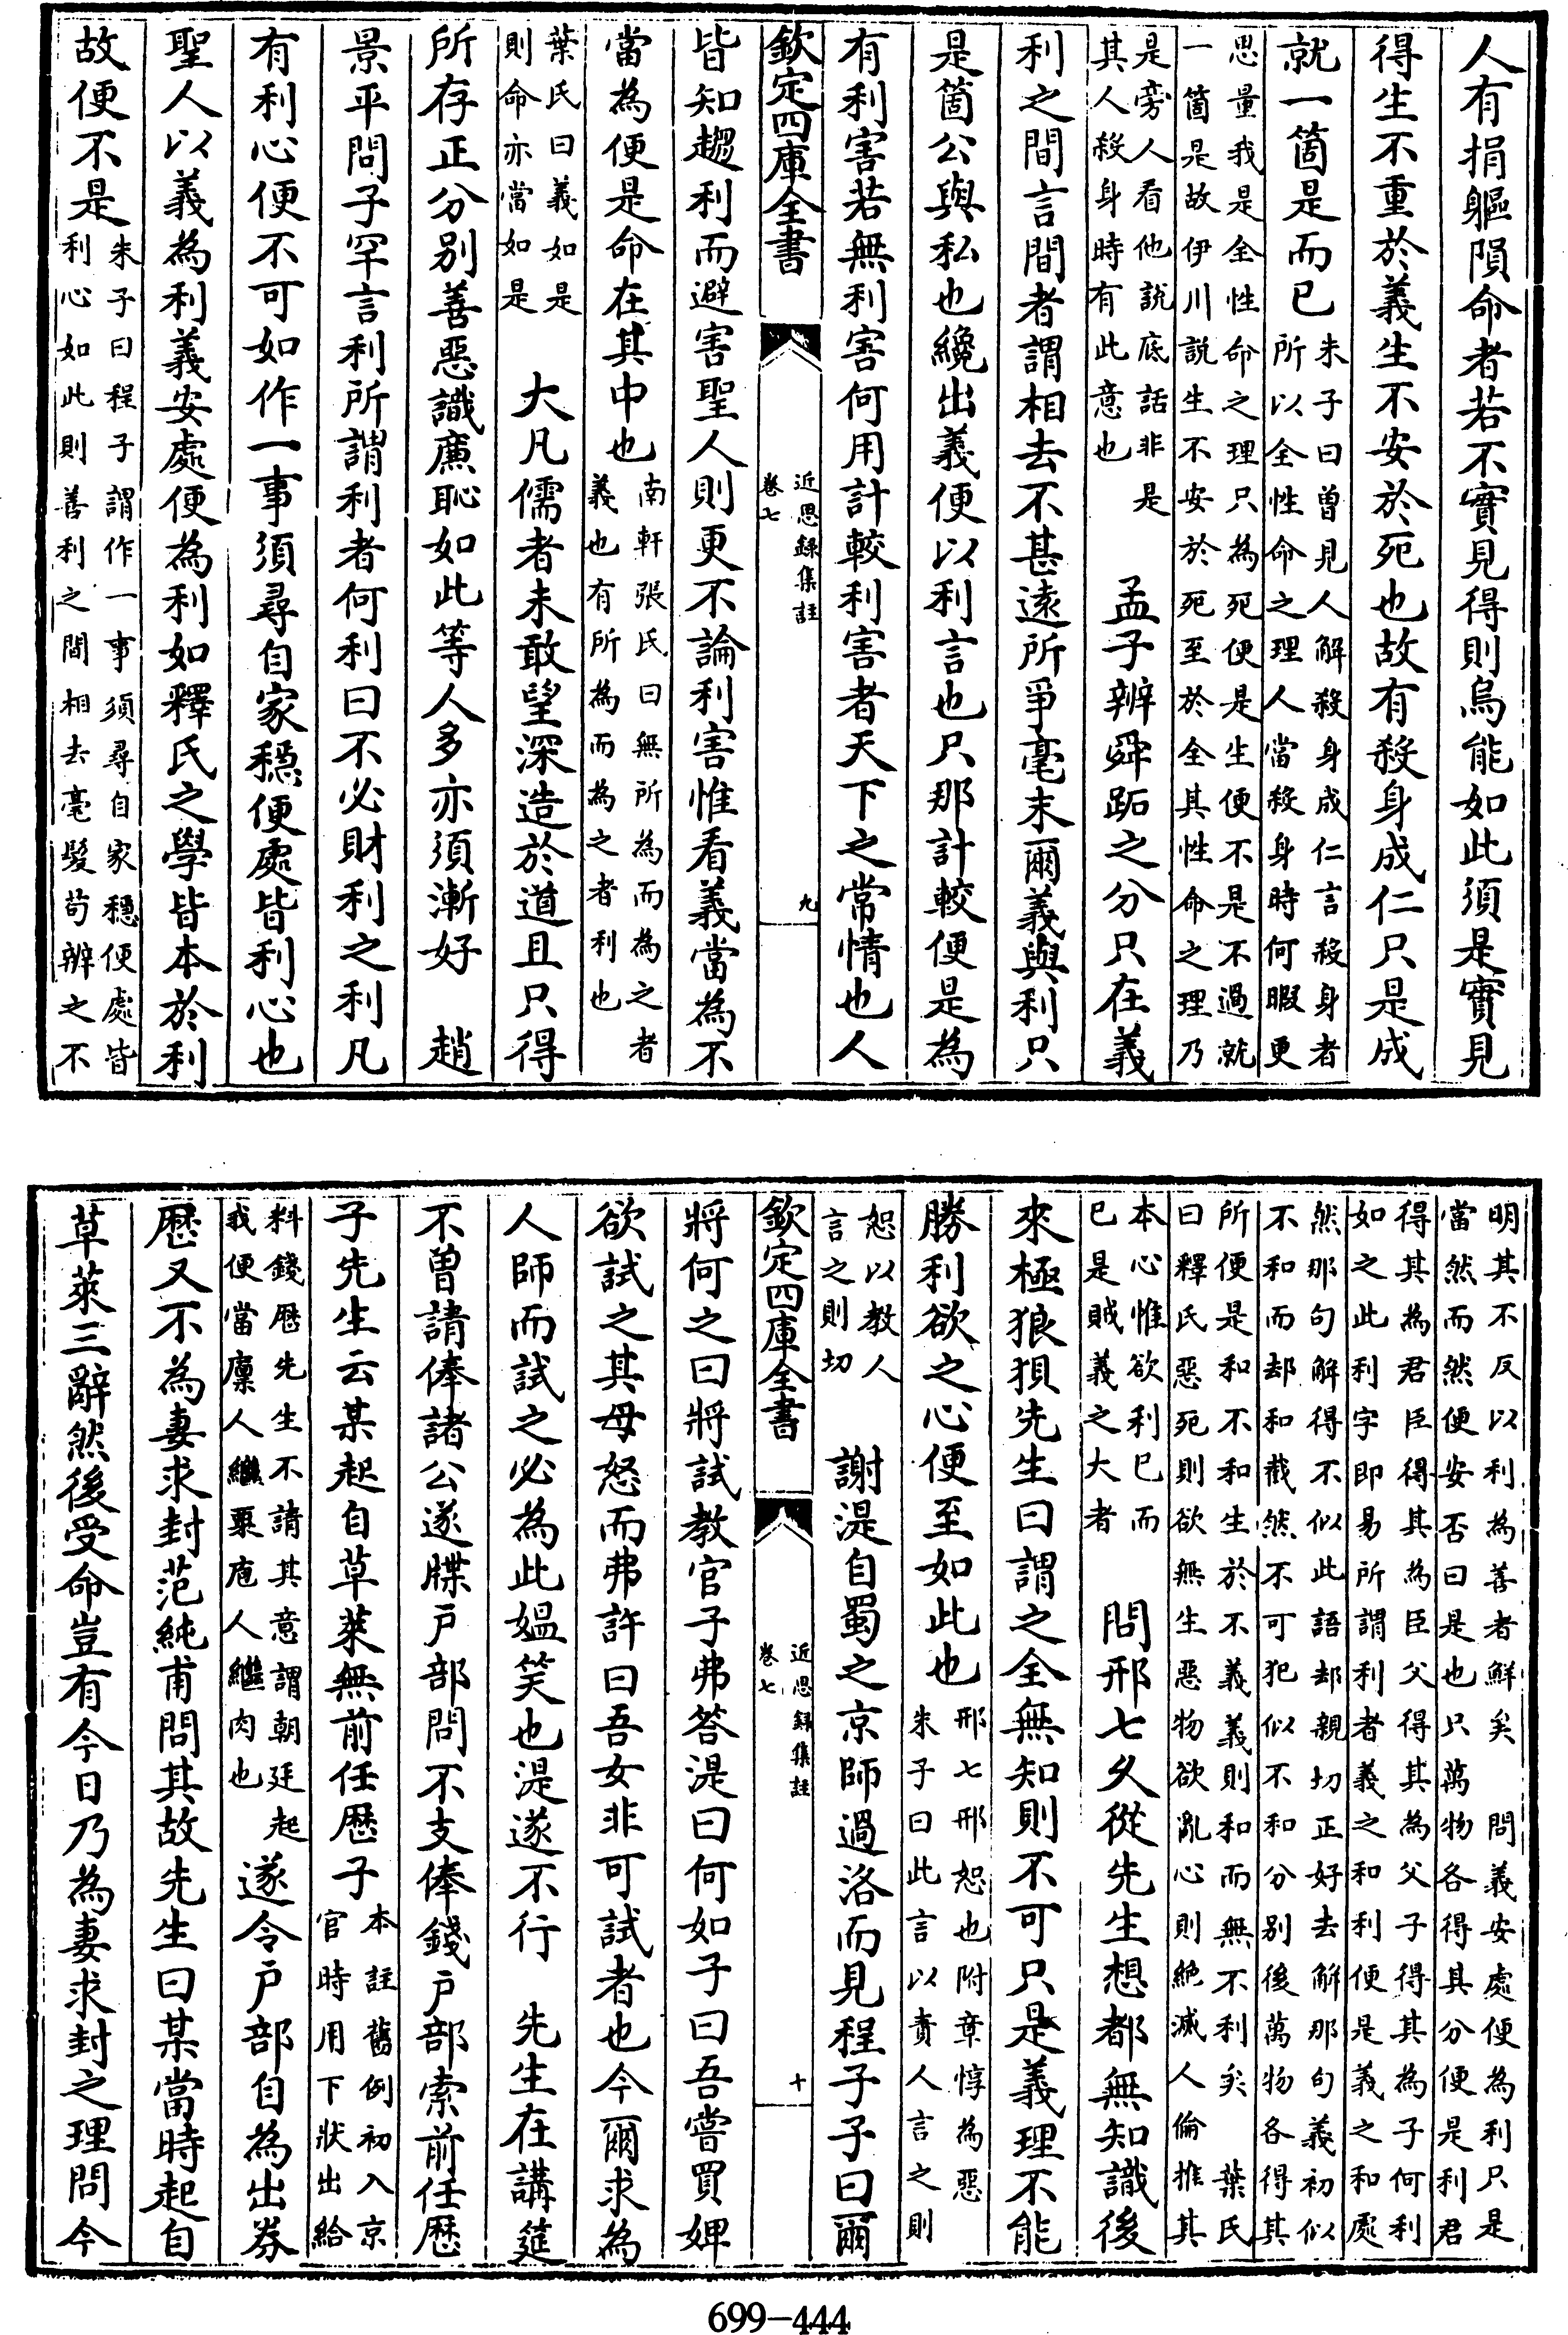 人有捐軀隕命者若不實見得則烏能如此須是實見
得生不重於義生不安於死也故有殺身成仁只是成
就一箇是而已
朱子曰曾見人解殺身成仁言殺身者
所以全性命之理人當殺身時何暇更
思量我是全性命之理只為死便是生便不是不過就
一箇是故伊川説生不安於死至於全其性命之理乃
是旁人看他説底話非是
其人殺身時有此意也
孟子辨舜跖之分只在義
利之間言間者謂相去不甚遠所爭毫末爾義與利只
是箇公與私也纔出義便以利言也只那計較便是為
有利害若無利害何用計較利害者天下之常情也人
欽定四庫全書
近思録集註
卷七
九
皆知趨利而避害聖人則更不論利害惟看義當為不
當為便是命在其中也
南軒張氏曰無所為而為之者
義也有所為而為之者利也
葉氏曰義如是
則命亦當如是
大凡儒者未敢望深造於道且只得
所存正分別善惡識廉恥如此等人多亦須漸好
趙
景平問子罕言利所謂利者何利曰不必財利之利凡
有利心便不可如作一事須尋自家穩便處皆利心也
聖人以義為利義安處便為利如釋氏之學皆本於利
故便不是
朱子曰程子謂作一事須尋自家穩便處皆
利心如此則善利之間相去毫髮苟辨之不
明其不反以利為善者鮮矣
問義安處便為利只是
當然而然便安否曰是也只萬物各得其分便是利君
得其為君臣得其為臣父得其為父子得其為子何利
如之此利字即易所謂利者義之和利便是義之和處
然那句解得不似此語却親切正好去解那句義初似
不和而却和截然不可犯似不和分別後萬物各得其
所便是和不和生於不義義則和而無不利矣
葉氏
曰釋氏惡死則欲無生惡物欲亂心則絶滅人倫推其
本心惟欲利己而
已是賊義之大者
問邢七久從先生想都無知識後
來極狼狽先生曰謂之全無知則不可只是義理不能
勝利欲之心便至如此也
邢七邢恕也附章惇為惡
朱子曰此言以責人言之則
恕以教人
言之則切
謝湜自蜀之京師過洛而見程子子曰爾
欽定四庫全書
近思録集註
卷七
十
將何之曰將試教官子弗答湜曰何如子曰吾嘗買婢
欲試之其母怒而弗許曰吾女非可試者也今爾求為
人師而試之必為此媪笑也湜遂不行
先生在講筵
不曾請俸諸公遂牒戸部問不支俸錢戸部索前任歴
子先生云某起自草萊無前任歴子
本註舊例初入京
官時用下狀出給
料錢歴先生不請其意謂朝廷起
我便當廩人繼粟庖人繼肉也
遂令戸部自為出券
歴又不為妻求封范純甫問其故先生曰某當時起自
草萊三辭然後受命豈有今日乃為妻求封之理問今
699-444